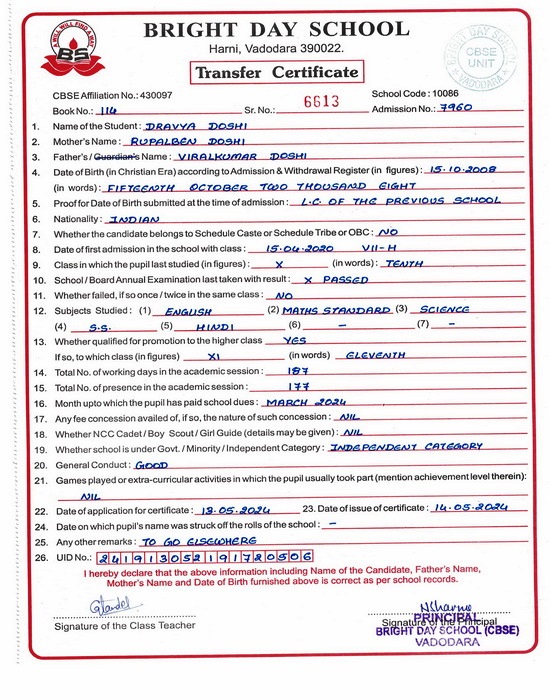 A WILL WILL FIND A WAY
BS
BRIGHT DAY SCHOOL
Harni, Vadodara 390022.
Transfer Certificate
BRIGHT DAY SCHOOL
CBSE
UNIT
VADODARA
CBSE Affiliation No.: 430097 School Code : 10086
Book No.: 114 Sr. No.: 6613 Admission No.: 7960
1. Name of the Student : DRAVYA DOSHI
2. Mother's Name : RUPALBEN DOSHI
3. Father's / Guardian's Name : VIRALKUMAR DOSHI
4. Date of Birth (in Christian Era) according to Admission & Withdrawal Register (in figures) : 15.10.2008
(in words) : FIFTEENTH OCTOBER TWO THOUSAND EIGHT
5. Proof for Date of Birth submitted at the time of admission : L.C OF THE PREVIOUS SCHOOL
6. Nationality : INDIAN
7. Whether the candidate belongs to Schedule Caste or Schedule Tribe or OBC : NO
8. Date of first admission in the school with class : 15.04.2020 VII-H
9. Class in which the pupil last studied (in figures) : X (in words) : TENTH
10. School / Board Annual Examination last taken with result : X PASSED
11. Whether failed, if so once / twice in the same class : NO
12. Subjects Studied : (1) ENGLISH (2) MATHS STANDARD (3) SCIENCE
(4) S.S. (5) HINDI (6) – (7) –
13. Whether qualified for promotion to the higher class YES
If so, to which class (in figures) XI (in words) ELEVENTH
14. Total No. of working days in the academic session : 187
15. Total No. of presence in the academic session : 177
16. Month upto which the pupil has paid school dues : MARCH 2024
17. Any fee concession availed of, if so, the nature of such concession : NIL
18. Whether NCC Cadet / Boy Scout / Girl Guide (details may be given) : NIL
19. Whether school is under Govt. / Minority / Independent Category : INDEPENDENT CATEGORY
20. General Conduct : GOOD
21. Games played or extra-curricular activities in which the pupil usually took part (mention achievement level therein):
NIL
22. Date of application for certificate : 13.05.2024 23. Date of issue of certificate : 14.05.2024
24. Date on which pupil's name was struck off the rolls of the school : –
25. Any other remarks : TO GO ELSEWHERE
26. UID No.: 241913052191720506
I hereby declare that the above information including Name of the Candidate, Father's Name,
Mother's Name and Date of Birth furnished above is correct as per school records.
Signature of the Class Teacher Signature of the Principal
PRINCIPAL
BRIGHT DAY SCHOOL (CBSE)
VADODARA